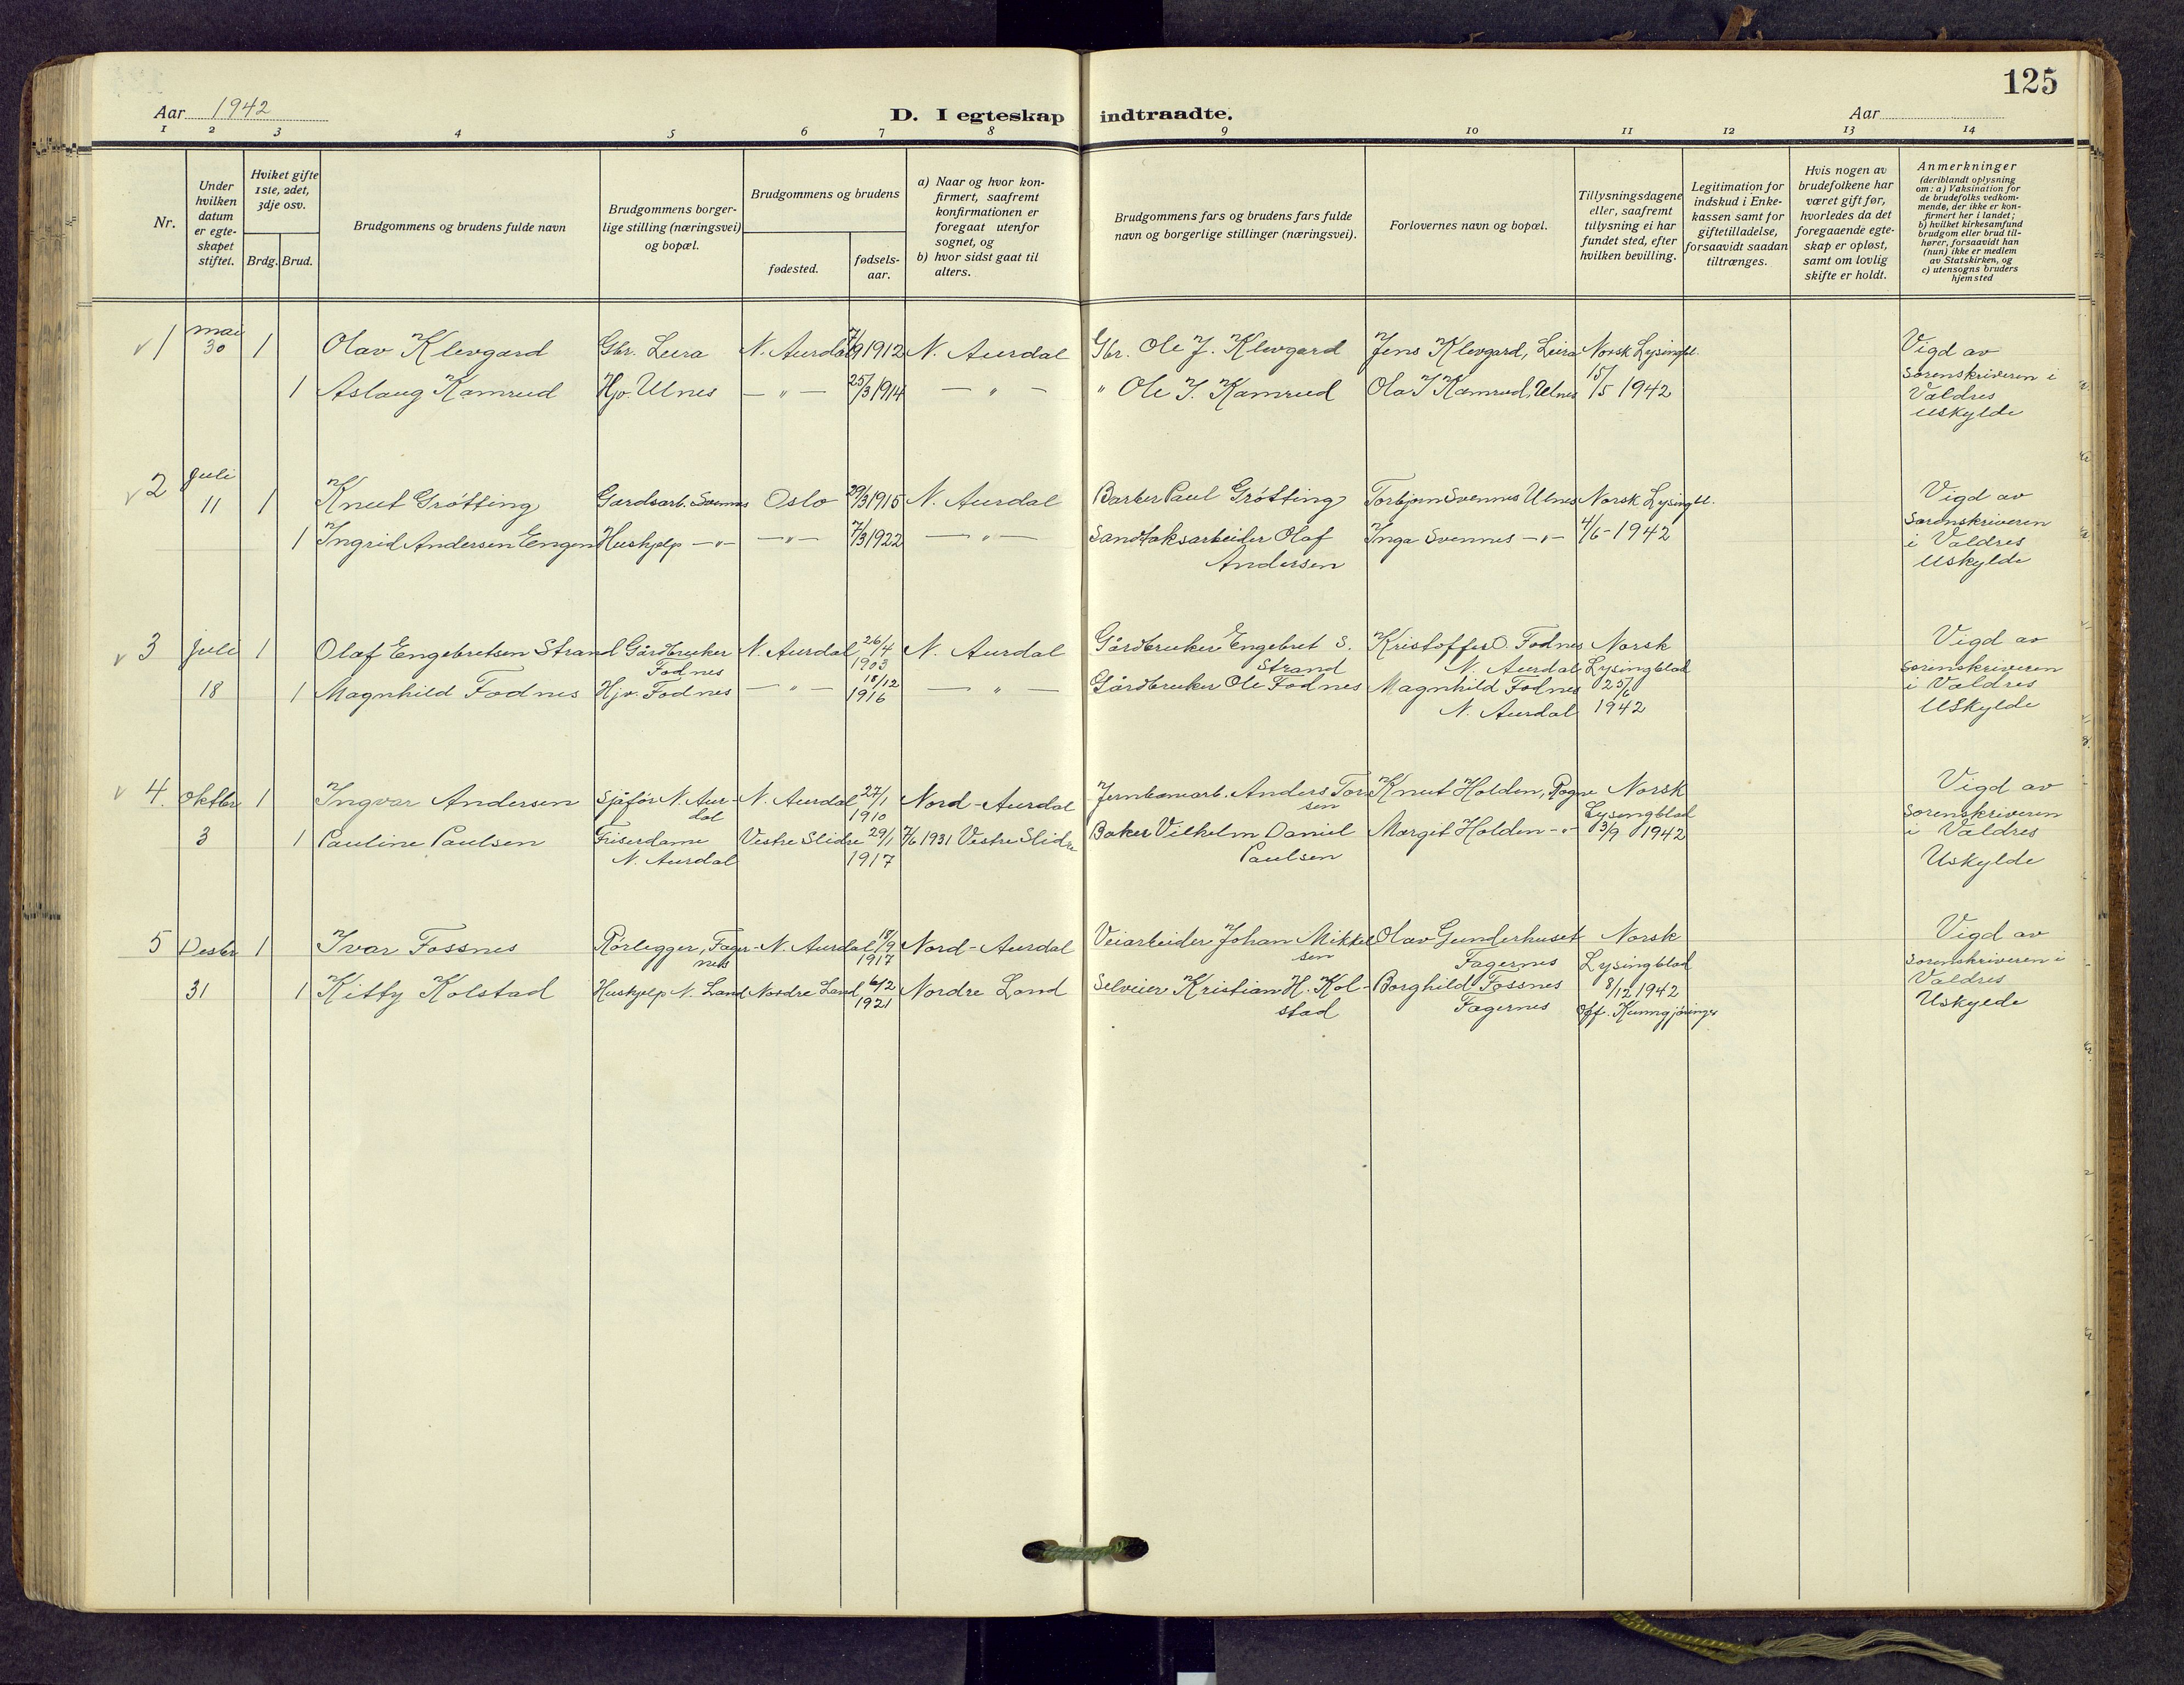 125
Aar 1942
D. I egteskap indtraadte.
Aar
1 2 3 4 5 6 7 8 9 10 11 12 13 14
Nr.
Under
hvilken
datum
er egte-
skapet
stiftet.
Hviket gifte
1ste, 2det,
3dje osv.
Brdg. Brud.
Brudgommens og brudens fulde navn
Brudgommens borger-
lige stilling (næringsvei)
og bopæl.
Brudgommens og brudens
fødested.
fødsels-
aar.
a) Naar og hvor kon-
firmert, saafremt
konfirmationen er
foregaat utenfor
sognet, og
b) hvor sidst gaat til
alters.
Brudgommens fars og brudens fars fulde
navn og borgerlige stillinger (næringsvei).
Forlovernes navn og bopæl.
Tillysningsdagene
eller, saafremt
tillysning ei har
fundet sted, efter
hvilken bevilling.
Legitimation for
indskud i Enke-
kassen samt for
giftetilladelse,
forsaavidt saadan
tiltrænges.
Hvis nogen av
brudefolkene har
været gift før,
hvorledes da det
foregaaende egte-
skap er opløst,
samt om lovlig
skifte er holdt.
Anmerkninger
(deriblandt oplysning
om: a) Vaksination for
de brudefolks vedkom-
mende, der ikke er kon-
firmert her i landet;
b) hvilket kirkesamfund
brudgom eller brud til-
hører, forsaavidt han
(hun) ikke er medlem
av Statskirken, og
c) utensogns bruders
hjemsted
√ 1 mai 30 1 Olav Klevgard Gbr. Leira N. Aurdal 7/9 1912 N. Aurdal Gbr. Ole J. Klevgard Jens Klevgard, Leira Norsk Lysingbl.
1 Aslaug Kamrud Hjv. Ulnes — " — 25/3 1914 — " — " Ole J. Kamrud Ola J Kamrud, Ulnes 15/5 1942
Vigd av
Sorenskriveren i
Valdres
Uskylde
√ 2 Juli 11 1 Knut Grøtting Gardsarb. Svennes Oslo 29/3 1915 N. Aurdal Barber Paul Grøtting Torbjørn Svennes Ulnes Norsk Lysingbl.
1 Ingrid Andersen Engen Huskjelp — " — — " — 7/3 1922 — " — Sandtaksarbeider Olaf Inga Svennes — " — 4/6 - 1942
Andersen
Vigd av
Sorenskriveren
i Valdres
Uskylde
√ 3 Juli 1 Olaf Engebretsen Strand Gårdbruker N. Aurdal 26/4 N. Aurdal Gårdbruker Engebret S. Kristoffer O. Fodnes Norsk
Fodnes 1903 Strand N. Aurdal Lysingblad
18 1 Magnhild Fodnes Hjv. Fodnes — " — 18/12 — " — Gårdbruker Ole Fodnes Magnhild Fodnes 25/6
1916 N. Aurdal 1942
Vigd av
Sorenskriveren
i Valdres
Uskylde
√ 4. Oktbr 1 Ingvar Andersen Sjåfør N. Aur- N. Aurdal 27/1 Nord-Aurdal Jernbanearb. Anders Tor- Knut Holden, Rogne Norsk
dal 1910 sen Lysingblad
3 1 Pauline Paulsen Friserdame Vestre Slidre 29/1 7/6 1931 Vestre Slidre Baker Vilhelm Daniel Margit Holden - " - 3/9 1942
N. Aurdal 1917 Paulsen
Vigd av
Sorenskriveren
i Valdres
Uskylde
5 Desbr 1 Ivar Fossnes Rørlegger, Fager- N. Aurdal 18/9 Nord-Aurdal Veiarbeider Johan Mikkel- Olav Gunderhuset Norsk
nes 1917 sen Fagernes Lysingblad
31 1 Kitty Kolstad Huskjelp N. Land Nordre Land 6/2 Nordre Land Selveier Kristian H. Kol- Borghild Fossnes 8/12 1942
1921 stad Fagernes Off. Kunngjøringer
Vigd av
Sorenskriveren i
Valdres
Uskylde